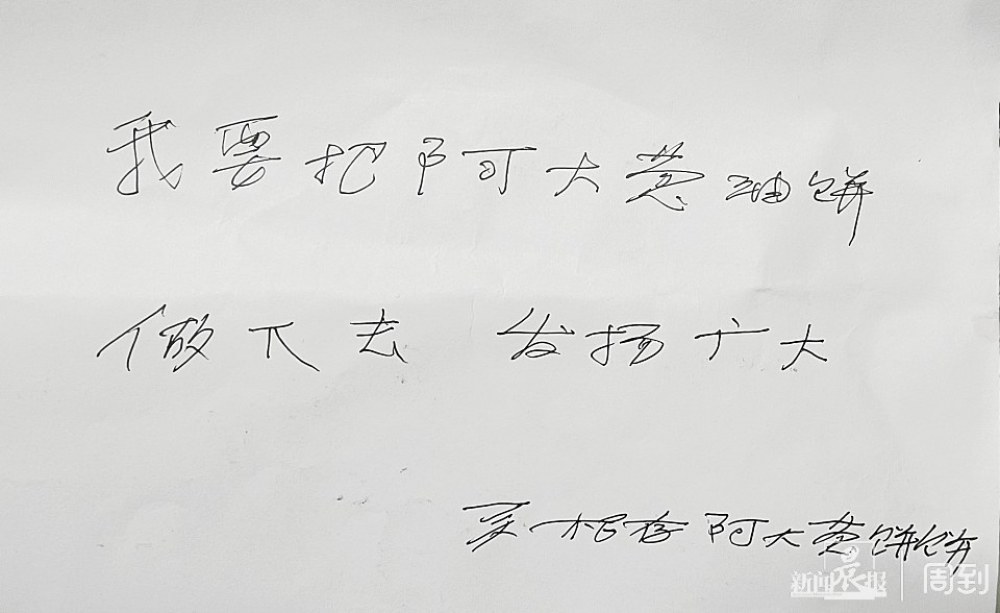 我要把阿大葱油饼
做下去 发扬广大
吴根存 阿大葱饼饼
新闻晨报 周到